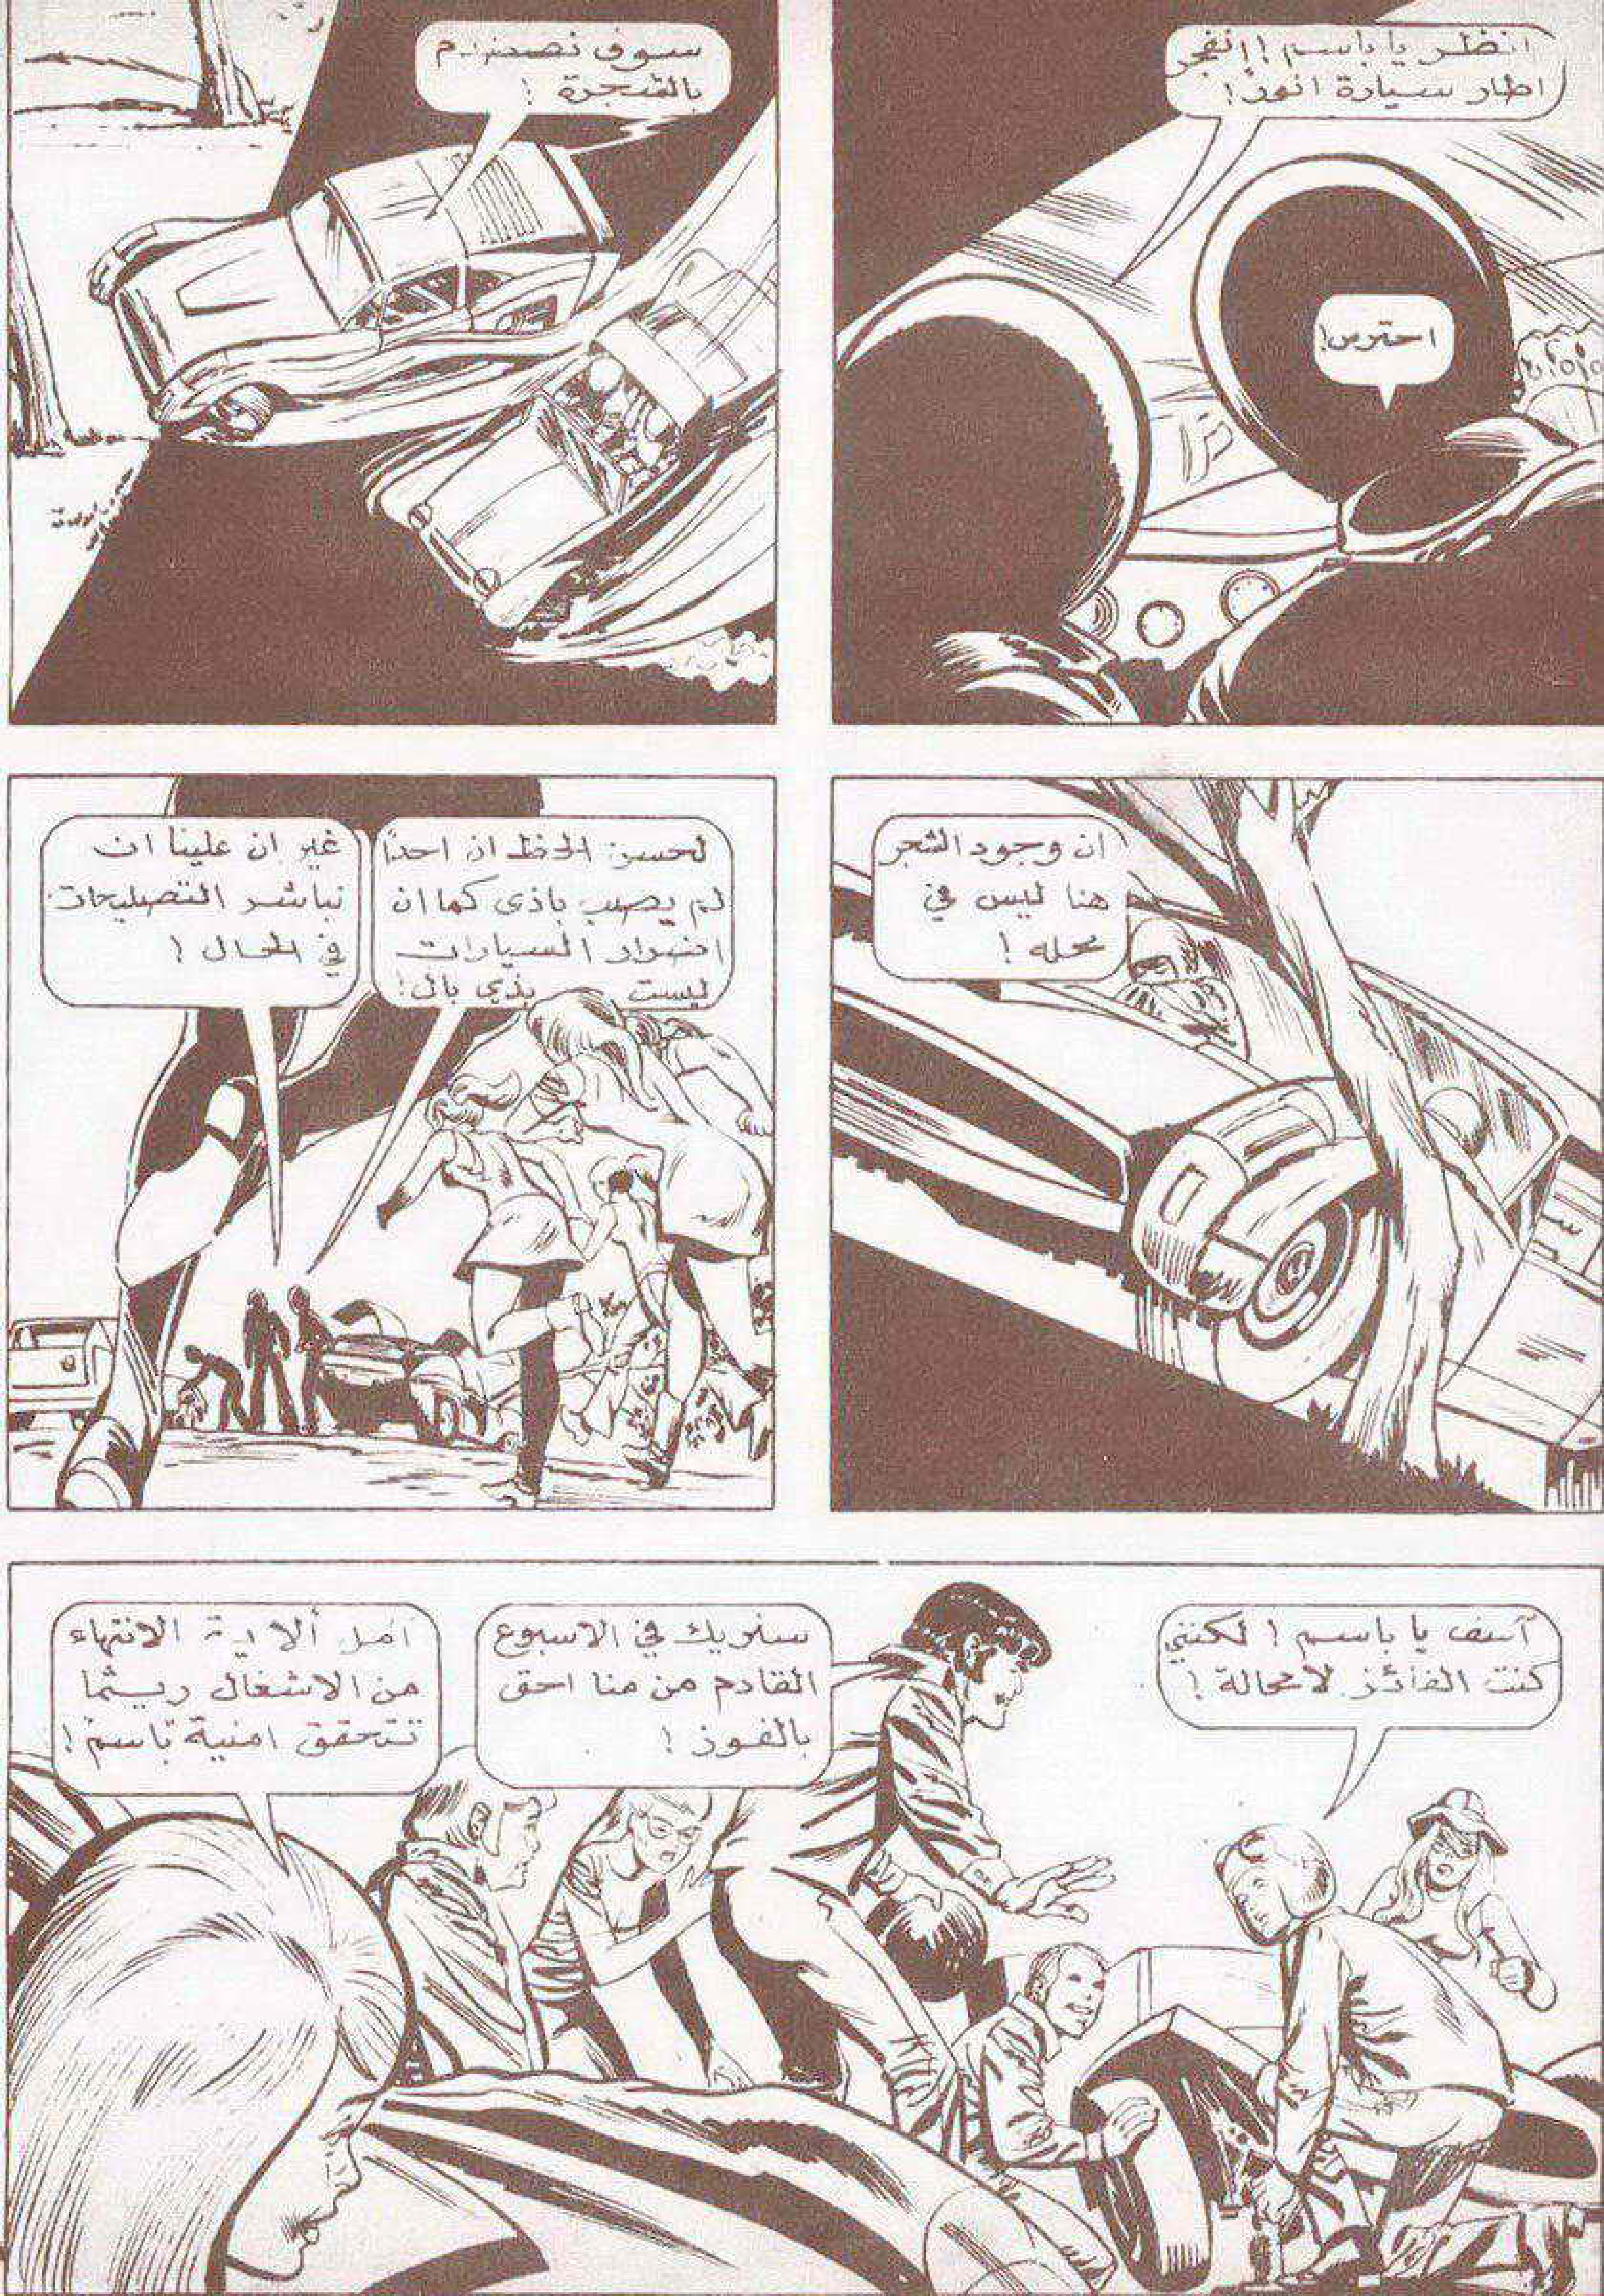 انظر يا باسم! إنفجر
اطار سيارة انور!
احترس!
سوف نصطدم
بالشجرة!
ان وجود الشجر
هنا ليس في
محله!
لحسن الحظ ان احدًا
لم يصب باذى كما ان
اضرار السيارات
ليست بذي بال!
غير ان علينا ان
نباشر التصليحات
في الحال!
آسف يا باسم! لكنني
كنت الفائز لا محالة!
سنريك في الاسبوع
القادم من منا احق
بالفوز!
امل ألا يتم الانتهاء
من الاشغال ريثما
تتحقق امنية باسم!